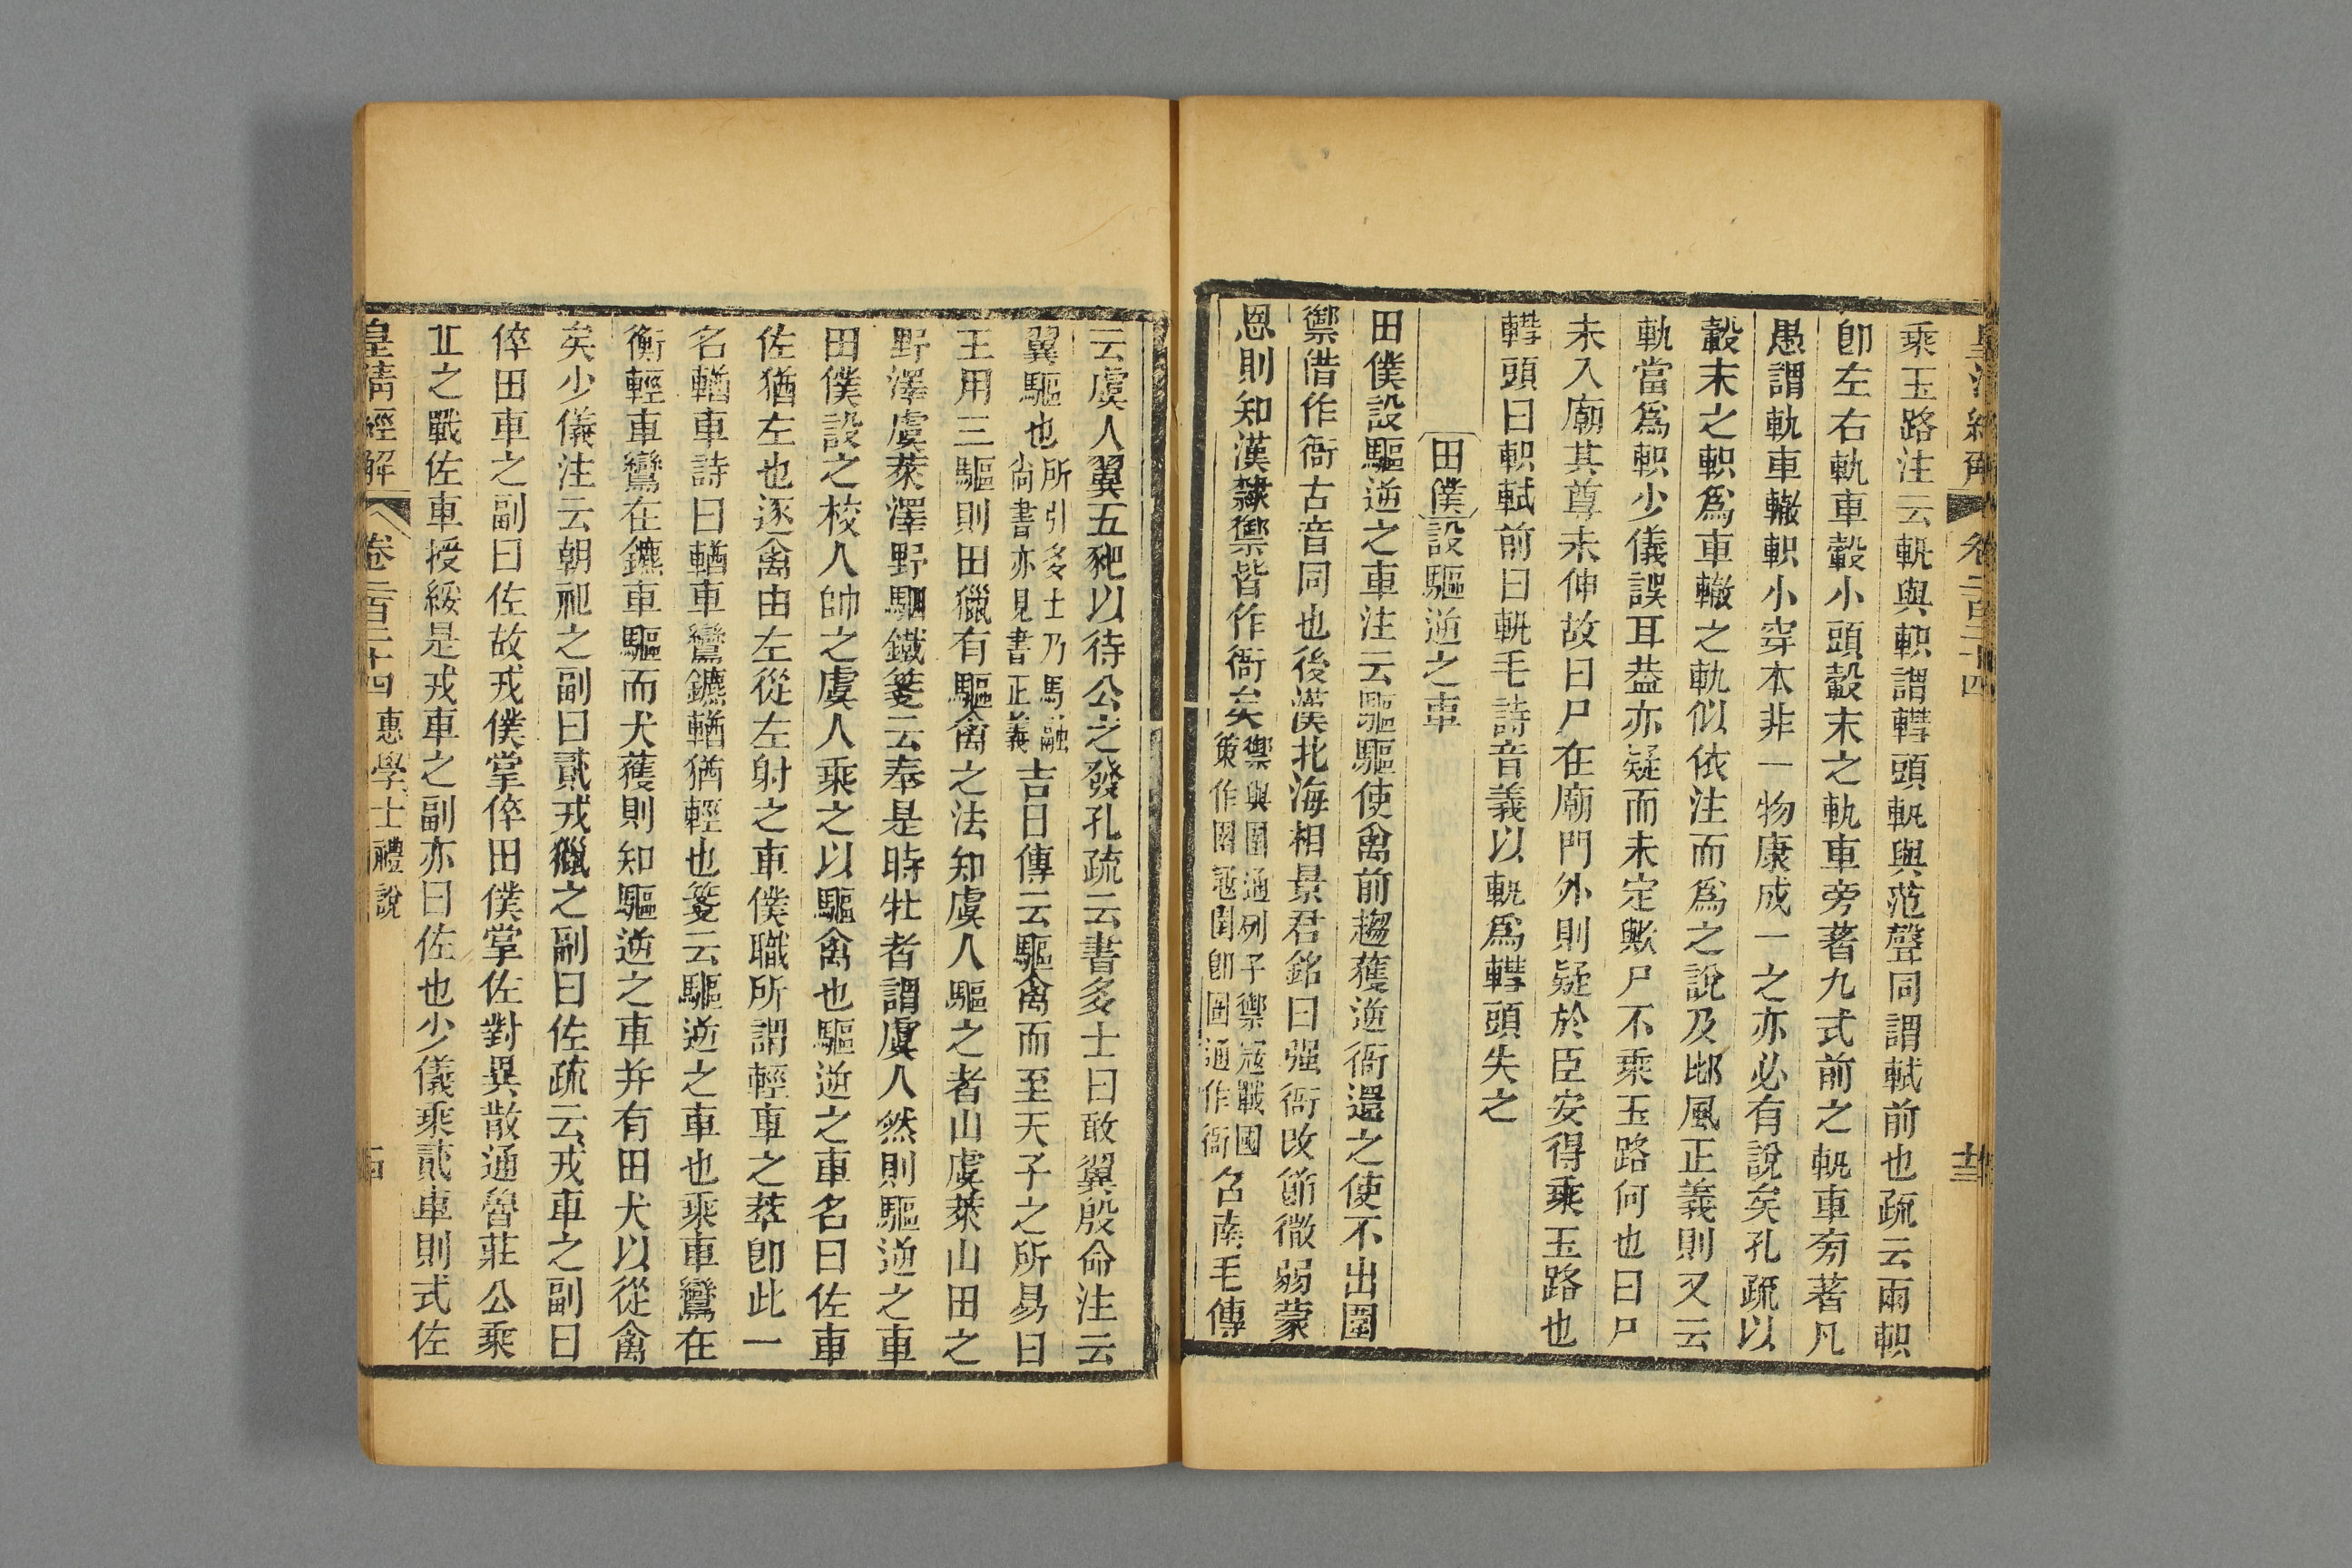 皇清經解 卷二百二十四
乘玉路注云軓與軹謂轊頭軓與范聲同謂軾前也疏云兩軹
卽左右軌車轂小頭轂末之軌車旁著九式前之軓車旁著凡
愚謂軌車轍軹小穿本非一物康成一之亦必有說矣孔疏以
轂末之軹爲車轍之軌似依注而爲之說及邶風正義則又云
軌當爲軹少儀誤耳葢亦疑而未定歟尸不乘玉路何也曰尸
未入廟其尊未伸故曰尸在廟門外則疑於臣安得乘玉路也
轊頭曰軹軾前曰軓毛詩音義以軓爲轊頭失之
田僕設驅逆之車
田僕設驅逆之車注云驅驅使禽前趨獲逆衙還之使不出圍
禦借作衙古音同也後漢北海相景君銘曰强衙改節微弱蒙
恩則知漢隸禦皆作衙矣禦與圉通列子禦寇戰國策作圄寇圉卽圄通作衙召南毛傳
云虞人翼五豝以待公之發孔疏云書多士曰敢翼殷命注云
翼驅也所引多士乃馬融尙書亦見書正義吉日傳云驅禽而至天子之所易曰
王用三驅則田獵有驅禽之法知虞人驅之者山虞萊山田之
野澤虞萊澤野駟鐵箋云奉是時牡者謂虞人然則驅逆之車
田僕設之校人帥之虞人乘之以驅禽也驅逆之車名曰佐車
佐猶左也逐禽由左從左射之車僕職所謂輕車之萃卽此一
名輶車詩曰輶車鸞鑣輶猶輕也箋云驅逆之車也乘車鸞在
衡輕車鸞在鑣車驅而犬獲則知驅逆之車并有田犬以從禽
矣少儀注云朝祀之副曰貳戎獵之副曰佐疏云戎車之副曰
倅田車之副曰佐故戎僕掌倅田僕掌佐對異散通魯莊公乘
丠之戰佐車授綏是戎車之副亦曰佐也少儀乘貳車則式佐
皇清經解 卷二百二十四 惠學士禮說